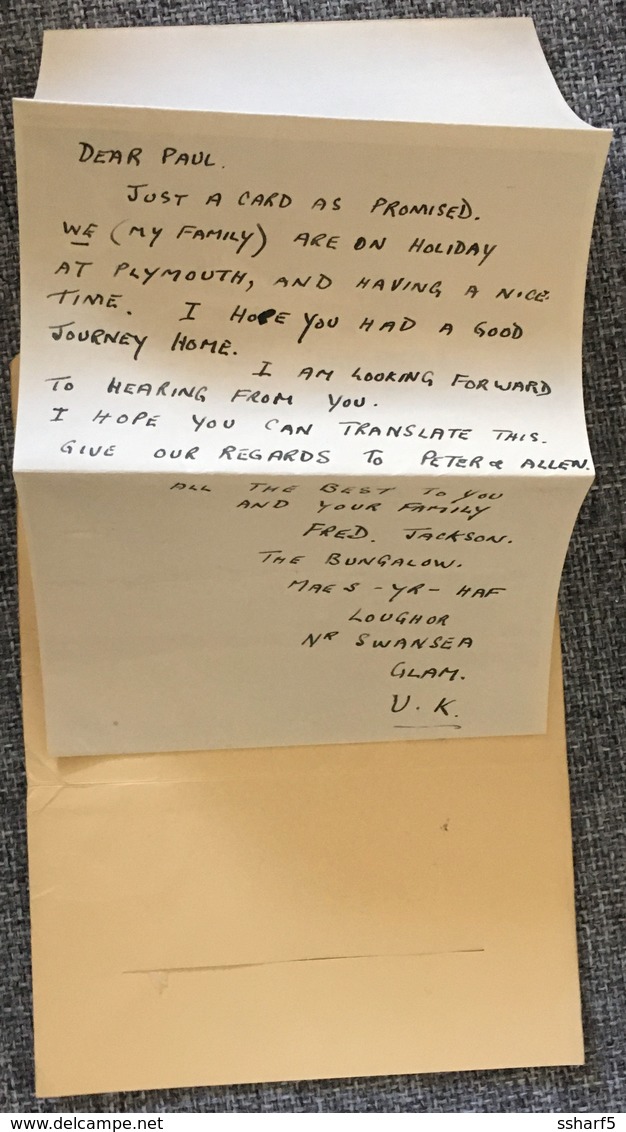 DEAR PAUL.
JUST A CARD AS PROMISED.
WE (MY FAMILY) ARE ON HOLIDAY
AT PLYMOUTH, AND HAVING A NICE
TIME. I HOPE YOU HAD A GOOD
JOURNEY HOME.
I AM LOOKING FORWARD
TO HEARING FROM YOU.
I HOPE YOU CAN TRANSLATE THIS.
GIVE OUR REGARDS TO PETER & ALLEN.
ALL THE BEST TO YOU
AND YOUR FAMILY
FRED. JACKSON.
THE BUNGALOW.
MAES-YR-HAF
LOUGHOR
NR SWANSEA
GLAM.
U.K.
www.delcampe.net
ssharf5